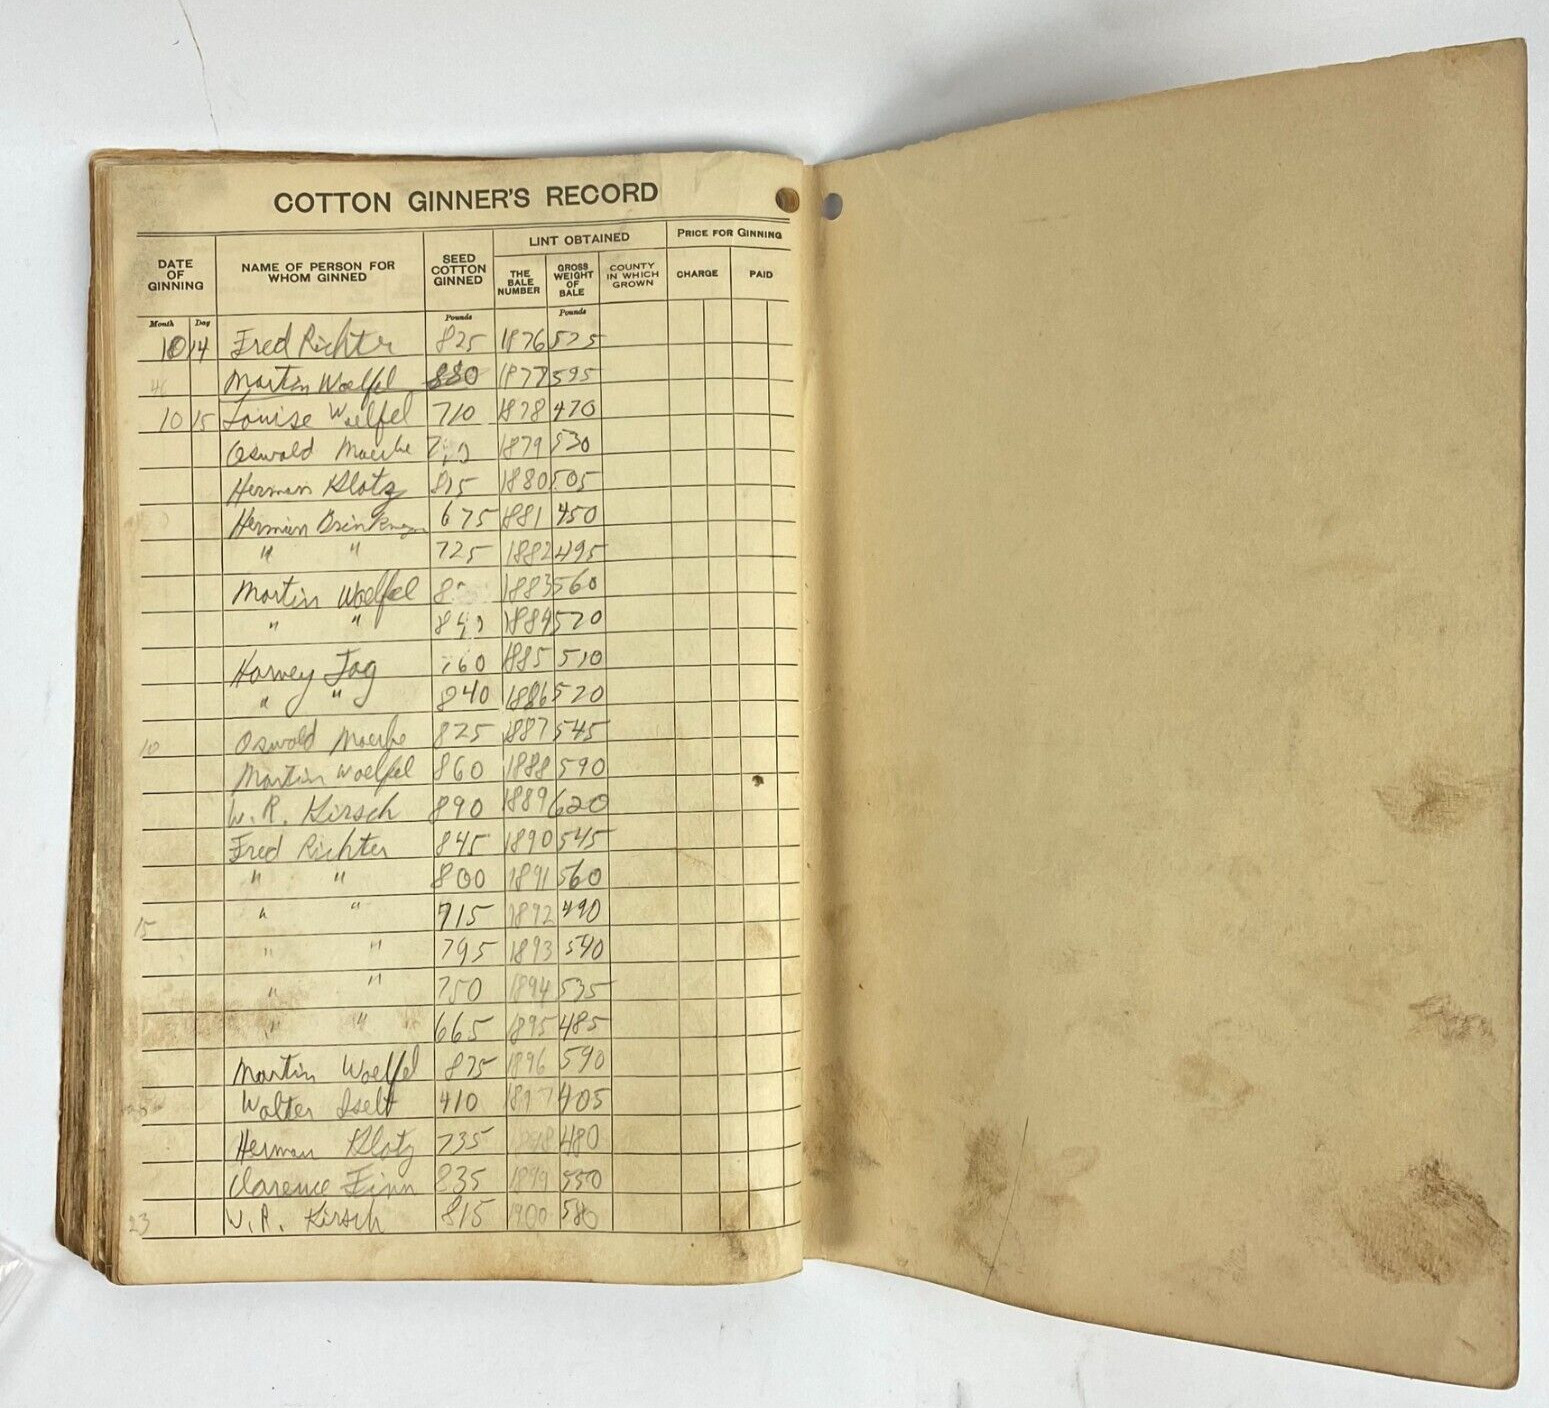 COTTON GINNER'S RECORD
DATE OF GINNING NAME OF PERSON FOR WHOM GINNED SEED COTTON GINNED LINT OBTAINED PRICE FOR GINNING
THE BALE NUMBER GROSS WEIGHT OF BALE COUNTY IN WHICH GROWN CHARGE PAID
Month Day Pounds Pounds
10 14 Fred Richter 825 1876 525
Martin Woelfel 880 1877 595
10 15 Louise Woelfel 710 1878 470
Oswald 1879 530
Herman Klotz 815 1880 505
Herman 675 1881 450
" " 725 1882 495
Martin Woelfel 1883 560
" " 1884 520
Harvey Jag 760 1885 510
" " 840 1886 520
10 Oswald 825 1887 545
Martin Woelfel 860 1888 590
W. R. Kirsch 890 1889 620
Fred Richter 845 1890 545
" " 800 1891 560
15 " " 715 1892 490
" " 795 1893 540
" " 750 1894 535
" " 665 1895 485
Martin Woelfel 875 1896 590
Walter Iselt 410 1897 405
Herman Klotz 735 1898 480
Clarence Finn 835 1899 550
23 W. R. Kirsch 815 1900 580